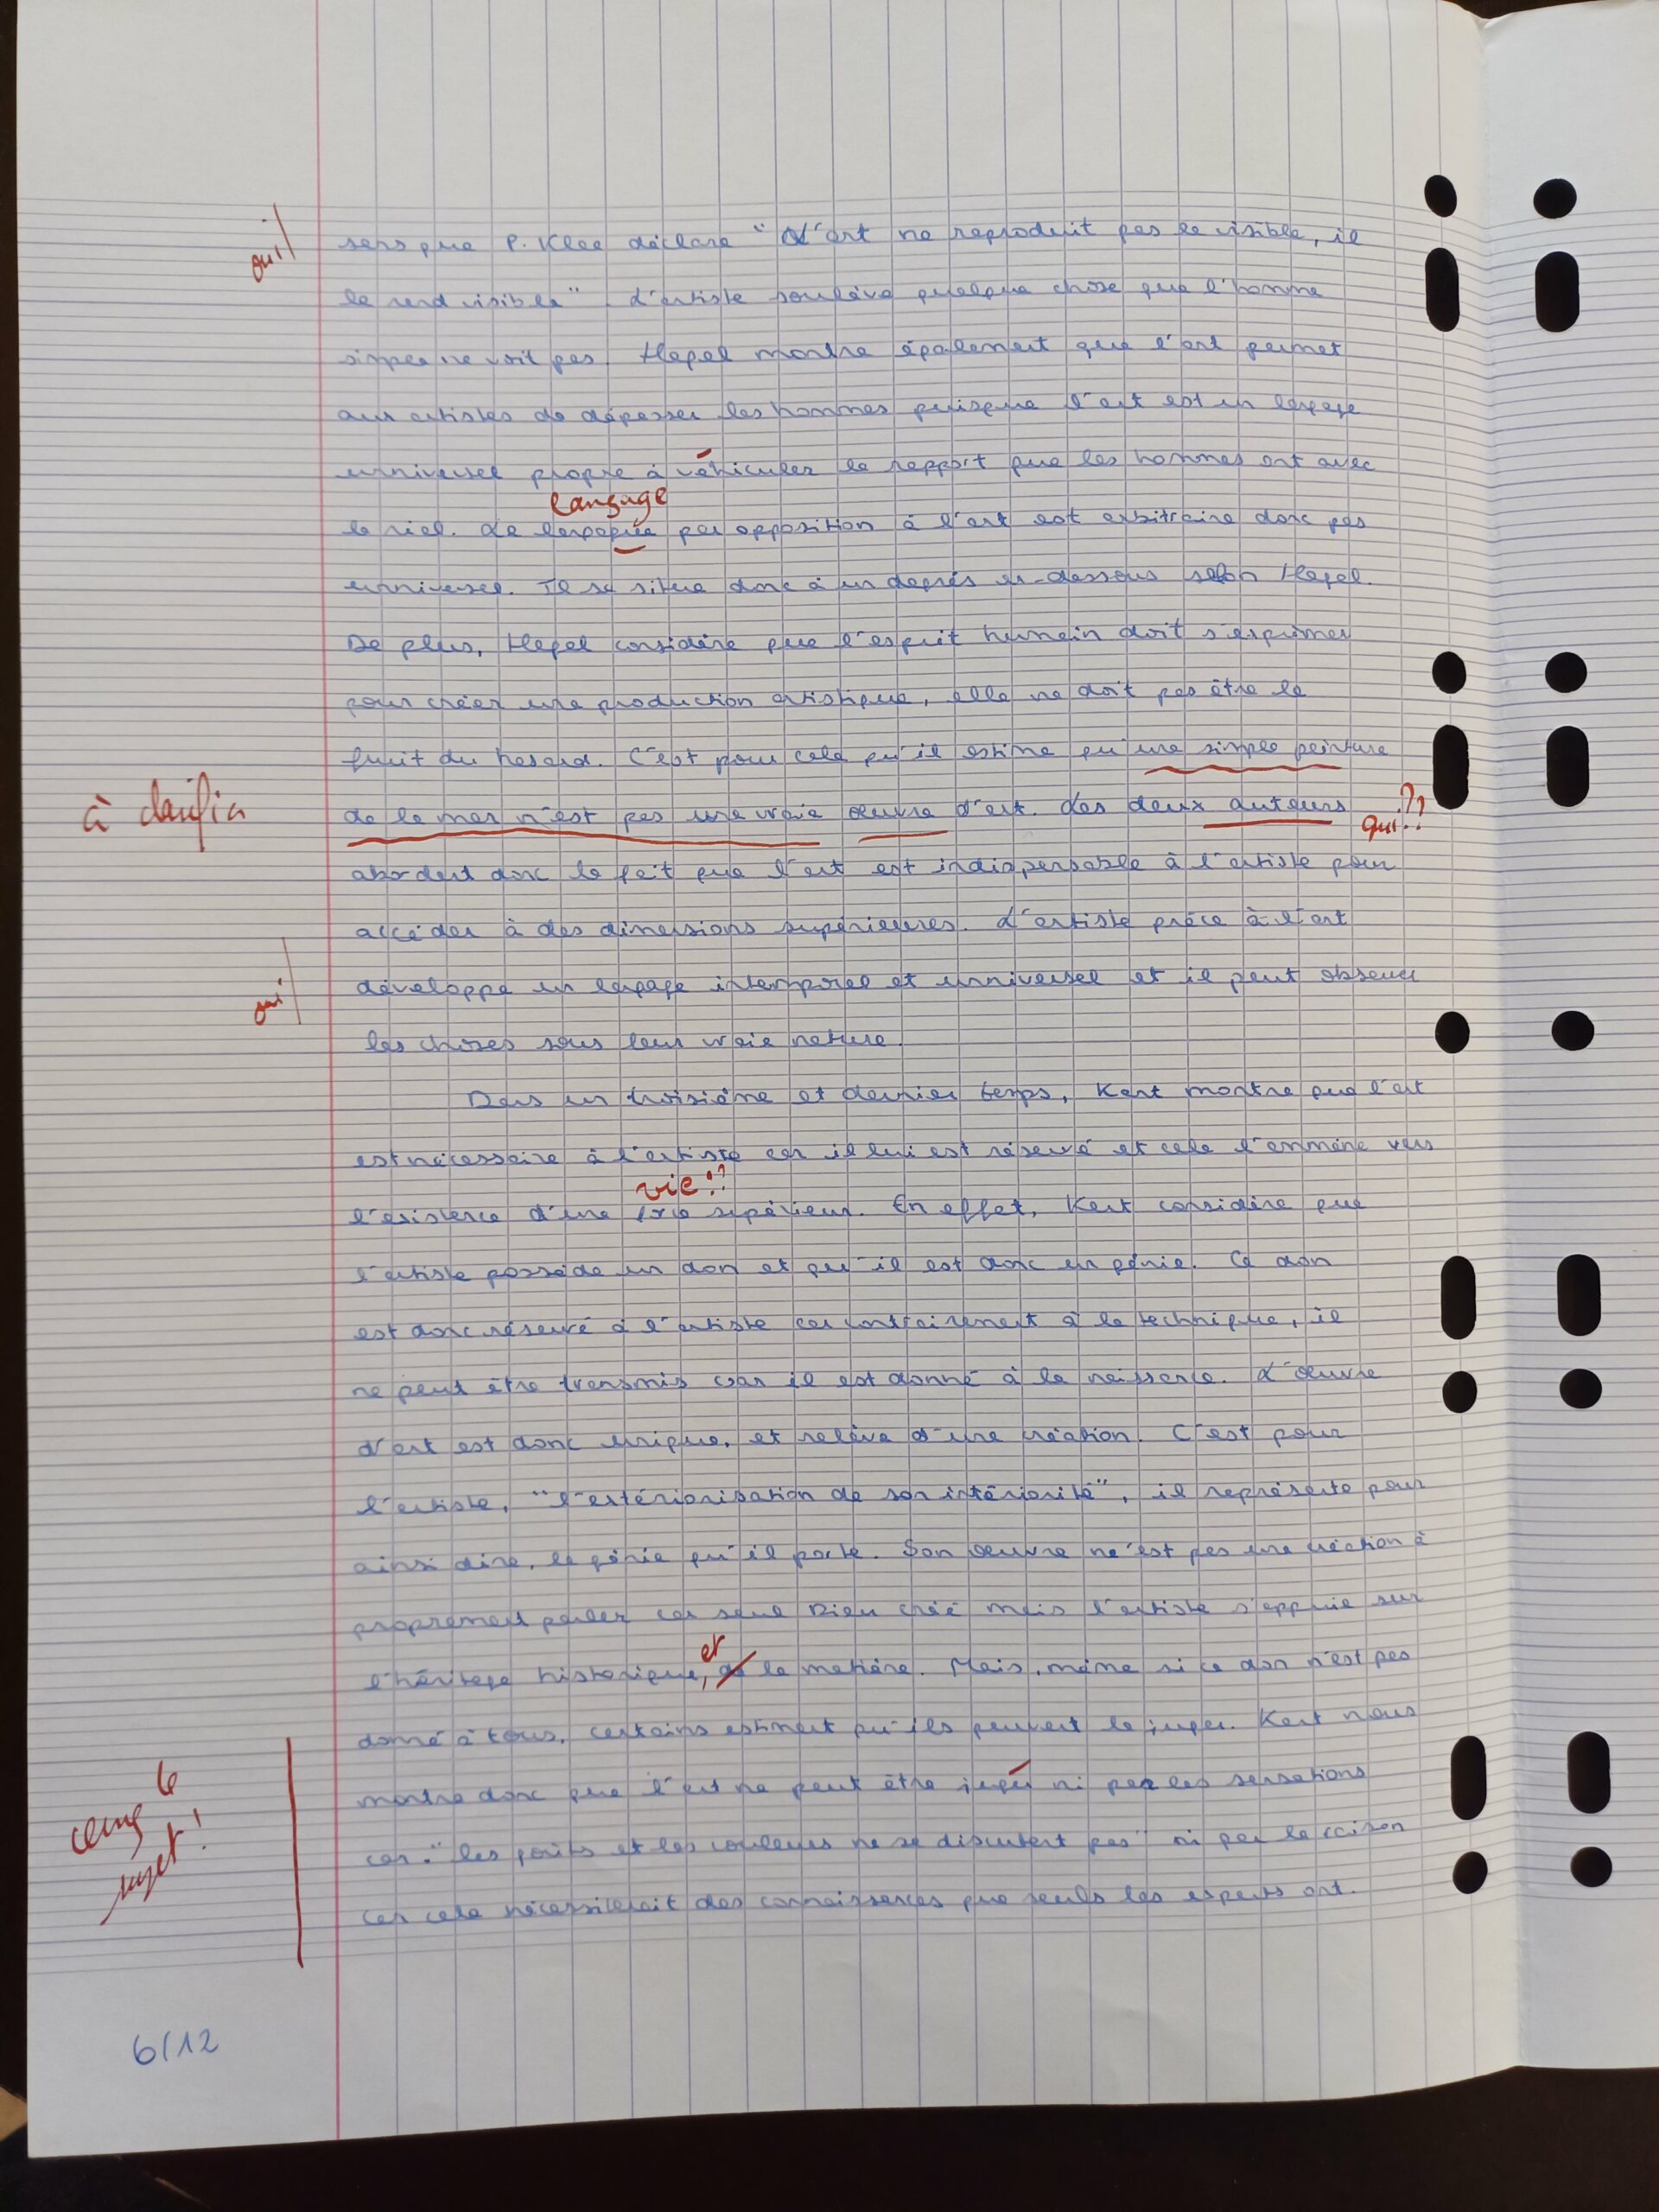 oui
sens que P. Klee déclare "L'art ne reproduit pas le visible, il
le rend visible". L'artiste soulève quelque chose que l'homme
simple ne voit pas. Hegel montre également que l'art permet
aux artistes de dépasser les hommes puisque l'art est un langage
unniversel propre à véhiculer le rapport que les hommes ont avec
langage
le réel. Le par opposition à l'art est arbitraire donc pas
unniversel. Il se situe donc à un degrés en-dessous selon Hegel.
De plus, Hegel considère que l'esprit humain doit s'exprimer
pour créer une production artistique, elle ne doit pas être le
fruit du hasard. C'est pour cela qu'il estime qu'une simple peinture
à clarifier
de la mer n'est pas une vraie œuvre d'art. Les deux auteurs ??
qui ??
abordent donc le fait que l'art est indispensable à l'artiste pour
accéder à des dimensions supérieures. L'artiste grâce à l'art
oui
développe un langage intemporel et unniversel et il peut observer
les choses sous leur vraie nature.
Dans un troisième et dernier temps, Kant montre que l'art
est nécessaire à l'artiste car il lui est réservé et cela l'emmène vers
vie??
l'existence d'une supérieur. En effet, Kant considère que
l'artiste possède un don et qu'il est donc un génie. Ce don
est donc réservé à l'artiste car contrairement à la technique, il
ne peut être transmis car il est donné à la naissance. L'œuvre
d'art est donc unique, et relève d'une création. C'est pour
l'artiste, "l'extériorisation de son intériorité", il représente pour
ainsi dire, le génie qu'il porte. Son œuvre ne'est pas une création à
proprement parler car seul Dieu créé mais l'artiste s'appuie sur
et
l'héritage historique, de la matière. Mais, même si ce don n'est pas
donné à tous, certains estiment qu'ils peuvent le juger. Kant nous
montre donc que l'art ne peut être jugé ni par les sensations
le
sujet !
car "les goûts et les couleurs ne se discutent pas" ni par la raison
car cela nécessiterait des connaissances que seuls les experts ont.
6/12